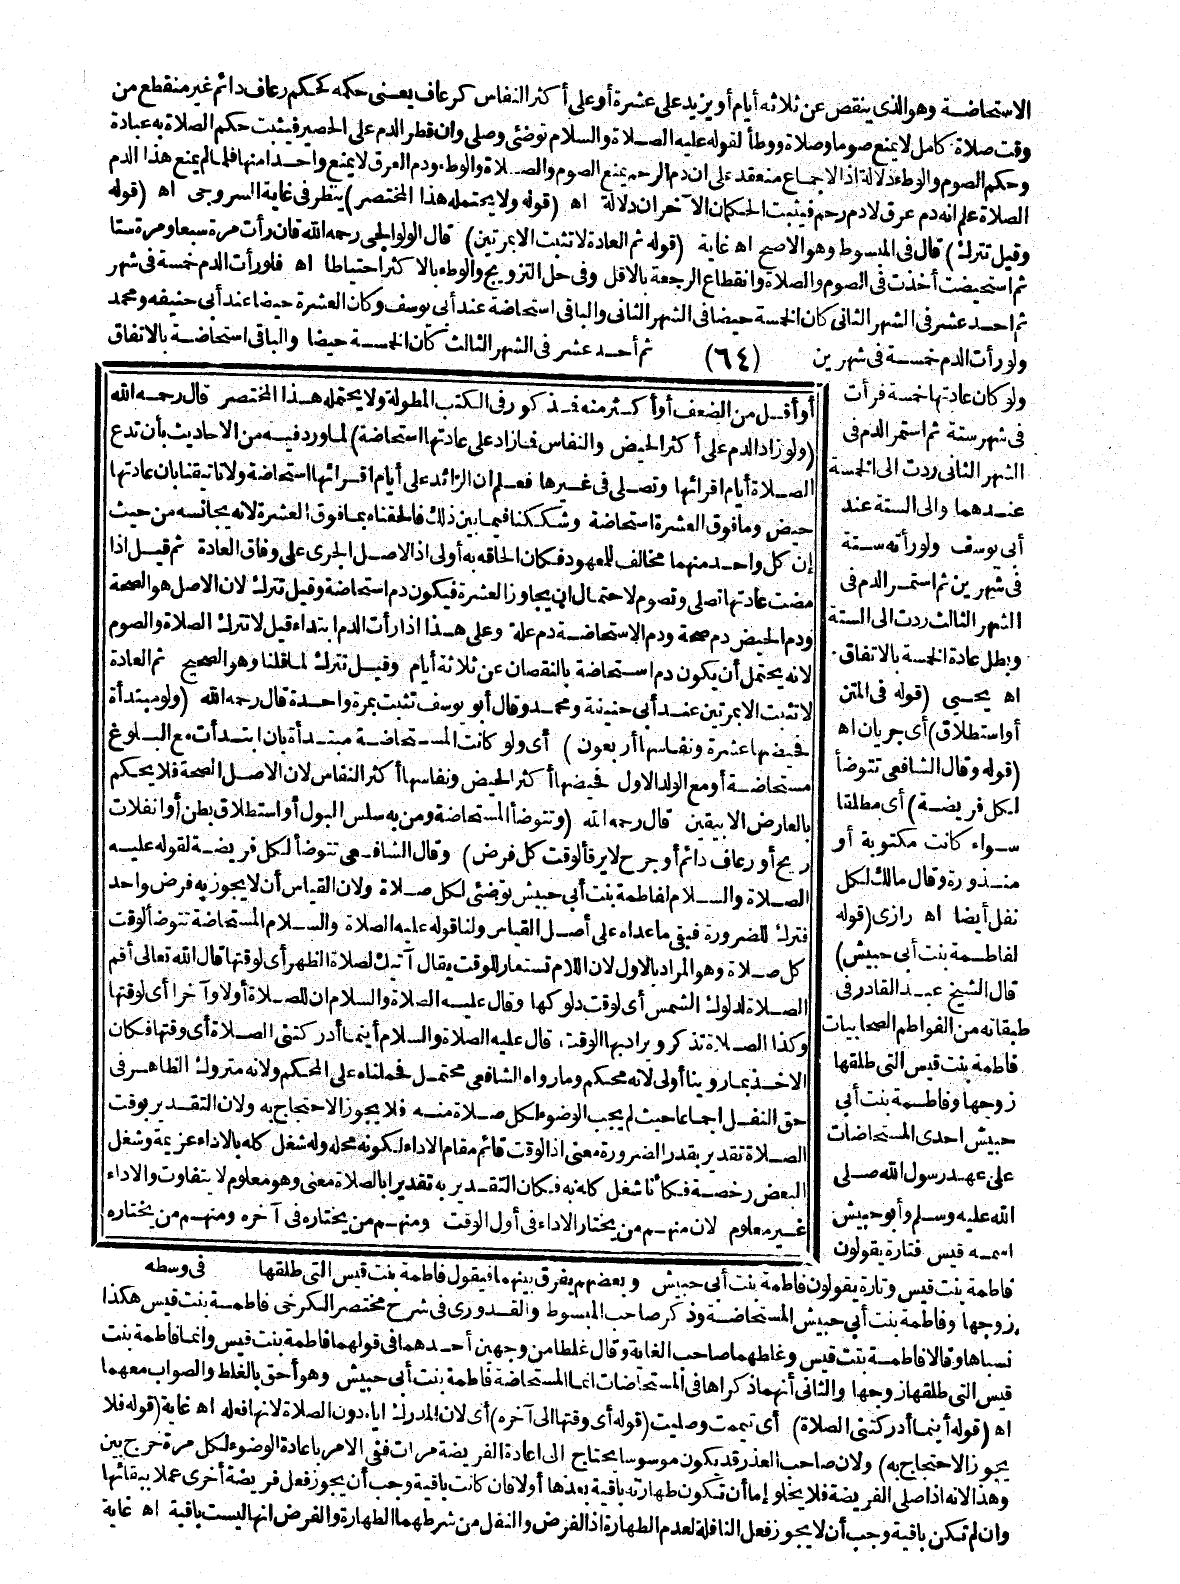 الاستحاضة وهو الذى ينقص عن ثلاثة أيام أو يزيد على عشرة أو على أكثر النفاس كرعاف يعنى حكمه كحكم رعاف دائم غير منقطع من
وقت صلاة كامل لا يمنع صوما وصلاة ووطأ لقوله عليه الصلاة والسلام توضئى وصلى وان قطر الدم على الحصير فيثبت حكم الصلاة به عبادة
وحكم الصوم والوطء دلالة اذ الاجماع منعقد على ان دم الرحم يمنع الصوم والصلاة والوطء ودم العرق لا يمنع واحدا منها فلما لم يمنع هذا الدم
الصلاة علم انه دم عرق لا دم رحم فيثبت الحكمان الآخران دلالة اه (قوله ولا يحتمله هذا المختصر) ينظر فى غاية السروجى اه (قوله
وقيل تترك) قال فى المبسوط وهو الاصح اه غاية (قوله ثم العادة لا تثبت الا بمرتين) قال الولوالجى رحمه الله فان رأت مرة سبعا ومرة ستا
ثم استحيضت أخذت فى الصوم والصلاة وانقطاع الرجعة بالاقل وفى حل التزويج والوطء بالاكثر احتياطا اه فلو رأت الدم خمسة فى شهر
ثم احد عشر فى الشهر الثانى كان الخمسة حيضا فى الشهر الثانى والباقى استحاضة عند أبى يوسف وكان العشرة حيضا عند أبى حنيفه ومحمد
ولو رأت الدم خمسة فى شهرين (٦٤) ثم أحد عشر فى الشهر الثالث كان الخمسة حيضا والباقى استحاضة بالاتفاق
ولو كان عادتها خمسة فرأت
فى شهر ستة ثم استمر الدم فى
الشهر الثانى ردت الى الخمسة
عندهما والى الستة عند
أبى يوسف ولو رأته ستة
فى شهرين ثم استمر الدم فى
الشهر الثالث ردت الى الستة
وبطل عادة الخمسة بالاتفاق
اه يحيى (قوله فى المتن
أو استطلاق) أى جريان اه
(قوله وقال الشافعى تتوضأ
لكل فريضة) أى مطلقا
سواء كانت مكتوبة أو
منذورة وقال مالك لكل
نفل أيضا اه رازى (قوله
لفاطمة بنت أبى حبيش)
قال الشيخ عبد القادر فى
طبقاته من الفواطم الصحابيات
فاطمة بنت قيس التى طلقها
زوجها وفاطمة بنت أبى
حبيش احدى المستحاضات
على عهد رسول الله صلى
الله عليه وسلم وأبو حبيش
اسمه قيس فتارة يقولون
أو أقل من الضعف أو أكثر منه فذكور فى الكتب المطولة ولا يحتمله هذا المختصر قال رحمه الله
(ولو زاد الدم على أكثر الحيض والنفاس فما زاد على عادتها استحاضة) لما ورد فيه من الاحاديث بأن تدع
الصلاة أيام اقرائها وتصلى فى غيرها فعلم ان الزائد على أيام اقرائها استحاضة ولانا تيقنا بان عادتها
حيض وما فوق العشرة استحاضة وشككنا فيما بين ذلك فالحقناه بما فوق العشرة لانه يجانسه من حيث
إن كل واحد منهما مخالف للمعهود فكان الحاقه به أولى اذ الاصل الجرى على وفاق العادة ثم قيل اذا
مضت عادتها تصلى وتصوم لاحتمال ان يجاوز العشرة فيكون دم استحاضة وقيل تترك لان الاصل هو الصحة
ودم الحيض دم صحة ودم الاستحاضة دم علة وعلى هذا اذا رأت الدم ابتداء قيل لا تترك الصلاة والصوم
لانه يحتمل أن يكون دم استحاضة بالنقصان عن ثلاثة أيام وقيل تترك لما قلنا وهو الصحيح ثم العادة
لا تثبت الا بمرتين عند أبى حنيفة ومحمد وقال أبو يوسف تثبت بمرة واحدة قال رحمه الله (ولو مبتدأة
فحيضها عشرة ونفاسها أربعون) أى ولو كانت المستحاضة مبتدأة بان ابتدأت مع البلوغ
مستحاضة أو مع الولد الاول فحيضها أكثر الحيض ونفاسها أكثر النفاس لان الاصل الصحة فلا يحكم
بالعارض الا بيقين قال رحمه الله (وتتوضأ المستحاضة ومن به سلس البول أو استطلاق بطن أو انفلات
ريح أو رعاف دائم أو جرح لا يرقأ لوقت كل فرض) وقال الشافعى تتوضأ لكل فريضة لقوله عليه
الصلاة والسلام لفاطمة بنت أبى حبيش توضئى لكل صلاة ولان القياس أن لا يجوز به فرض واحد
فترك للضرورة فبقى ما عداه على أصل القياس ولنا قوله عليه الصلاة والسلام المستحاضة تتوضأ لوقت
كل صلاة وهو المراد بالاول لان اللام تستعار للوقت يقال آتيك لصلاة الظهر أى لوقتها قال الله تعالى أقم
الصلاة لدلوك الشمس أى لوقت دلوكها وقال عليه الصلاة والسلام ان للصلاة أولا وآخرا أى لوقتها
وكذا الصلاة تذكر ويراد بها الوقت، قال عليه الصلاة والسلام أينما أدركتنى الصلاة أى وقتها فكان
الاخذ بما روينا أولى لانه محكم وما رواه الشافعى محتمل فحملناه على المحكم ولانه متروك الظاهر فى
حق النفل اجماعا حيث لم يجب الوضوء لكل صلاة منه فلا يجوز الاحتجاج به ولان التقدير بوقت
الصلاة تقدير بقدر الضرورة معنى اذ الوقت قائم مقام الاداء لكونه محله وله شغل كله بالاداء عزيمة وشغل
البعض رخصة فكأنا شغل كله به فكان التقدير به تقديرا بالصلاة معنى وهو معلوم لا يتفاوت والاداء
غير معلوم لان منهم من يختار الاداء فى أول الوقت ومنهم من يختاره فى آخره ومنهم من يختاره
فى وسطه
فاطمة بنت قيس وتارة يقولون فاطمة بنت أبى حبيش وبعضهم يفرق بينهما فيقول فاطمة بنت قيس التى طلقها
زوجها وفاطمة بنت أبى حبيش المستحاضة وذكر صاحب المبسوط والقدورى فى شرح مختصر الكرخى فاطمة بنت قيس هكذا
نسباها وقالا فاطمة بنت قيس وغلطهما صاحب الغاية وقال غلطا من وجهين أحدهما فى قولهما فاطمة بنت قيس وانما فاطمة بنت
قيس التى طلقها زوجها والثانى أنهما ذكراها فى المستحاضات انما المستحاضة فاطمة بنت أبى حبيش وهو أحق بالغلط والصواب معهما
اه (قوله أينما أدركتنى الصلاة) أى تيممت وصليت (قوله أى وقتها الى آخره) أى لان المدرك اياه دون الصلاة لانها فعله اه غاية (قوله فلا
يجوز الاحتجاج به) ولان صاحب العذر قد يكون موسوسا يحتاج الى اعادة الفريضة مرات ففى الامر باعادة الوضوء لكل مرة حرج بين
وهذا لانه اذا صلى الفريضة فلا يخلو إما أن تكون طهارته باقية بعدها أو لا فان كانت باقية وجب أن يجوز فعل فريضة أخرى عملا ببقائها
وان لم تكن باقية وجب أن لا يجوز فعل النافلة لعدم الطهارة اذ الفرض والنفل من شرطهما الطهارة والفرض انها ليست باقية اه غاية